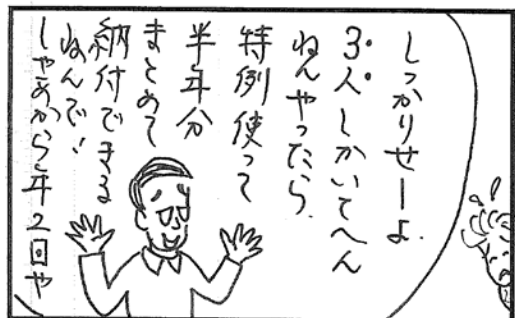 しっかりせーよ
3人しかいてへん
ねんやったら、
特例使って
半年分
まとめて
納付できる
ねんで!
しゃあから年2回や